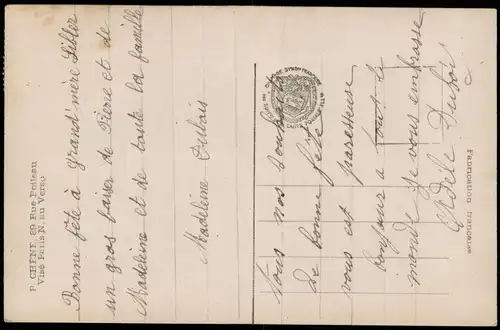 P. CHENE, 89 Rue Boileau
Visé Paris N. au Verso
Bonne fête à grand'mère Sibler
un gros baiser de Pierre et de
Madeleine et de toute la famille
Madeleine Dubois
Tous nos souhaits
de bonne fête
vous est paresseuse
bonjour a tout le
monde Je vous embrasse
Adèle Dubois
Fabrication française